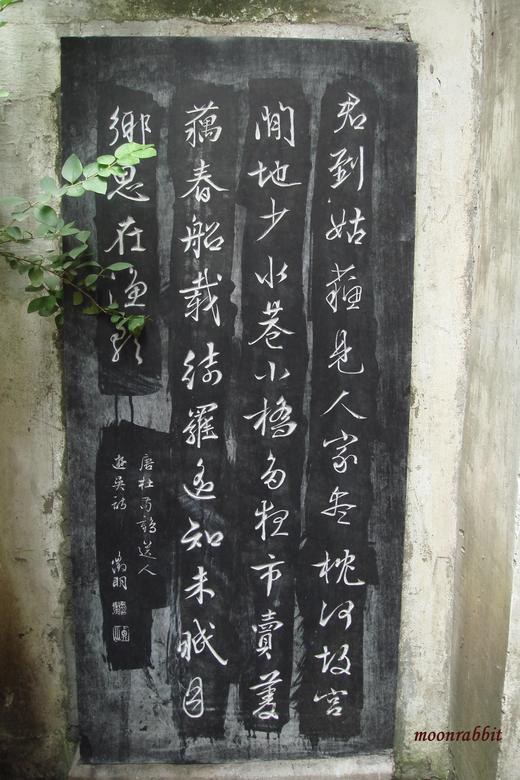 君到姑蘇見人家盡枕河故宮
閒地少水巷小橋多夜市賣菱
藕春船載綺羅遙知未眠月
鄉思在漁歌
唐杜荀鶴送人
遊吳詩 徵明
moonrabbit